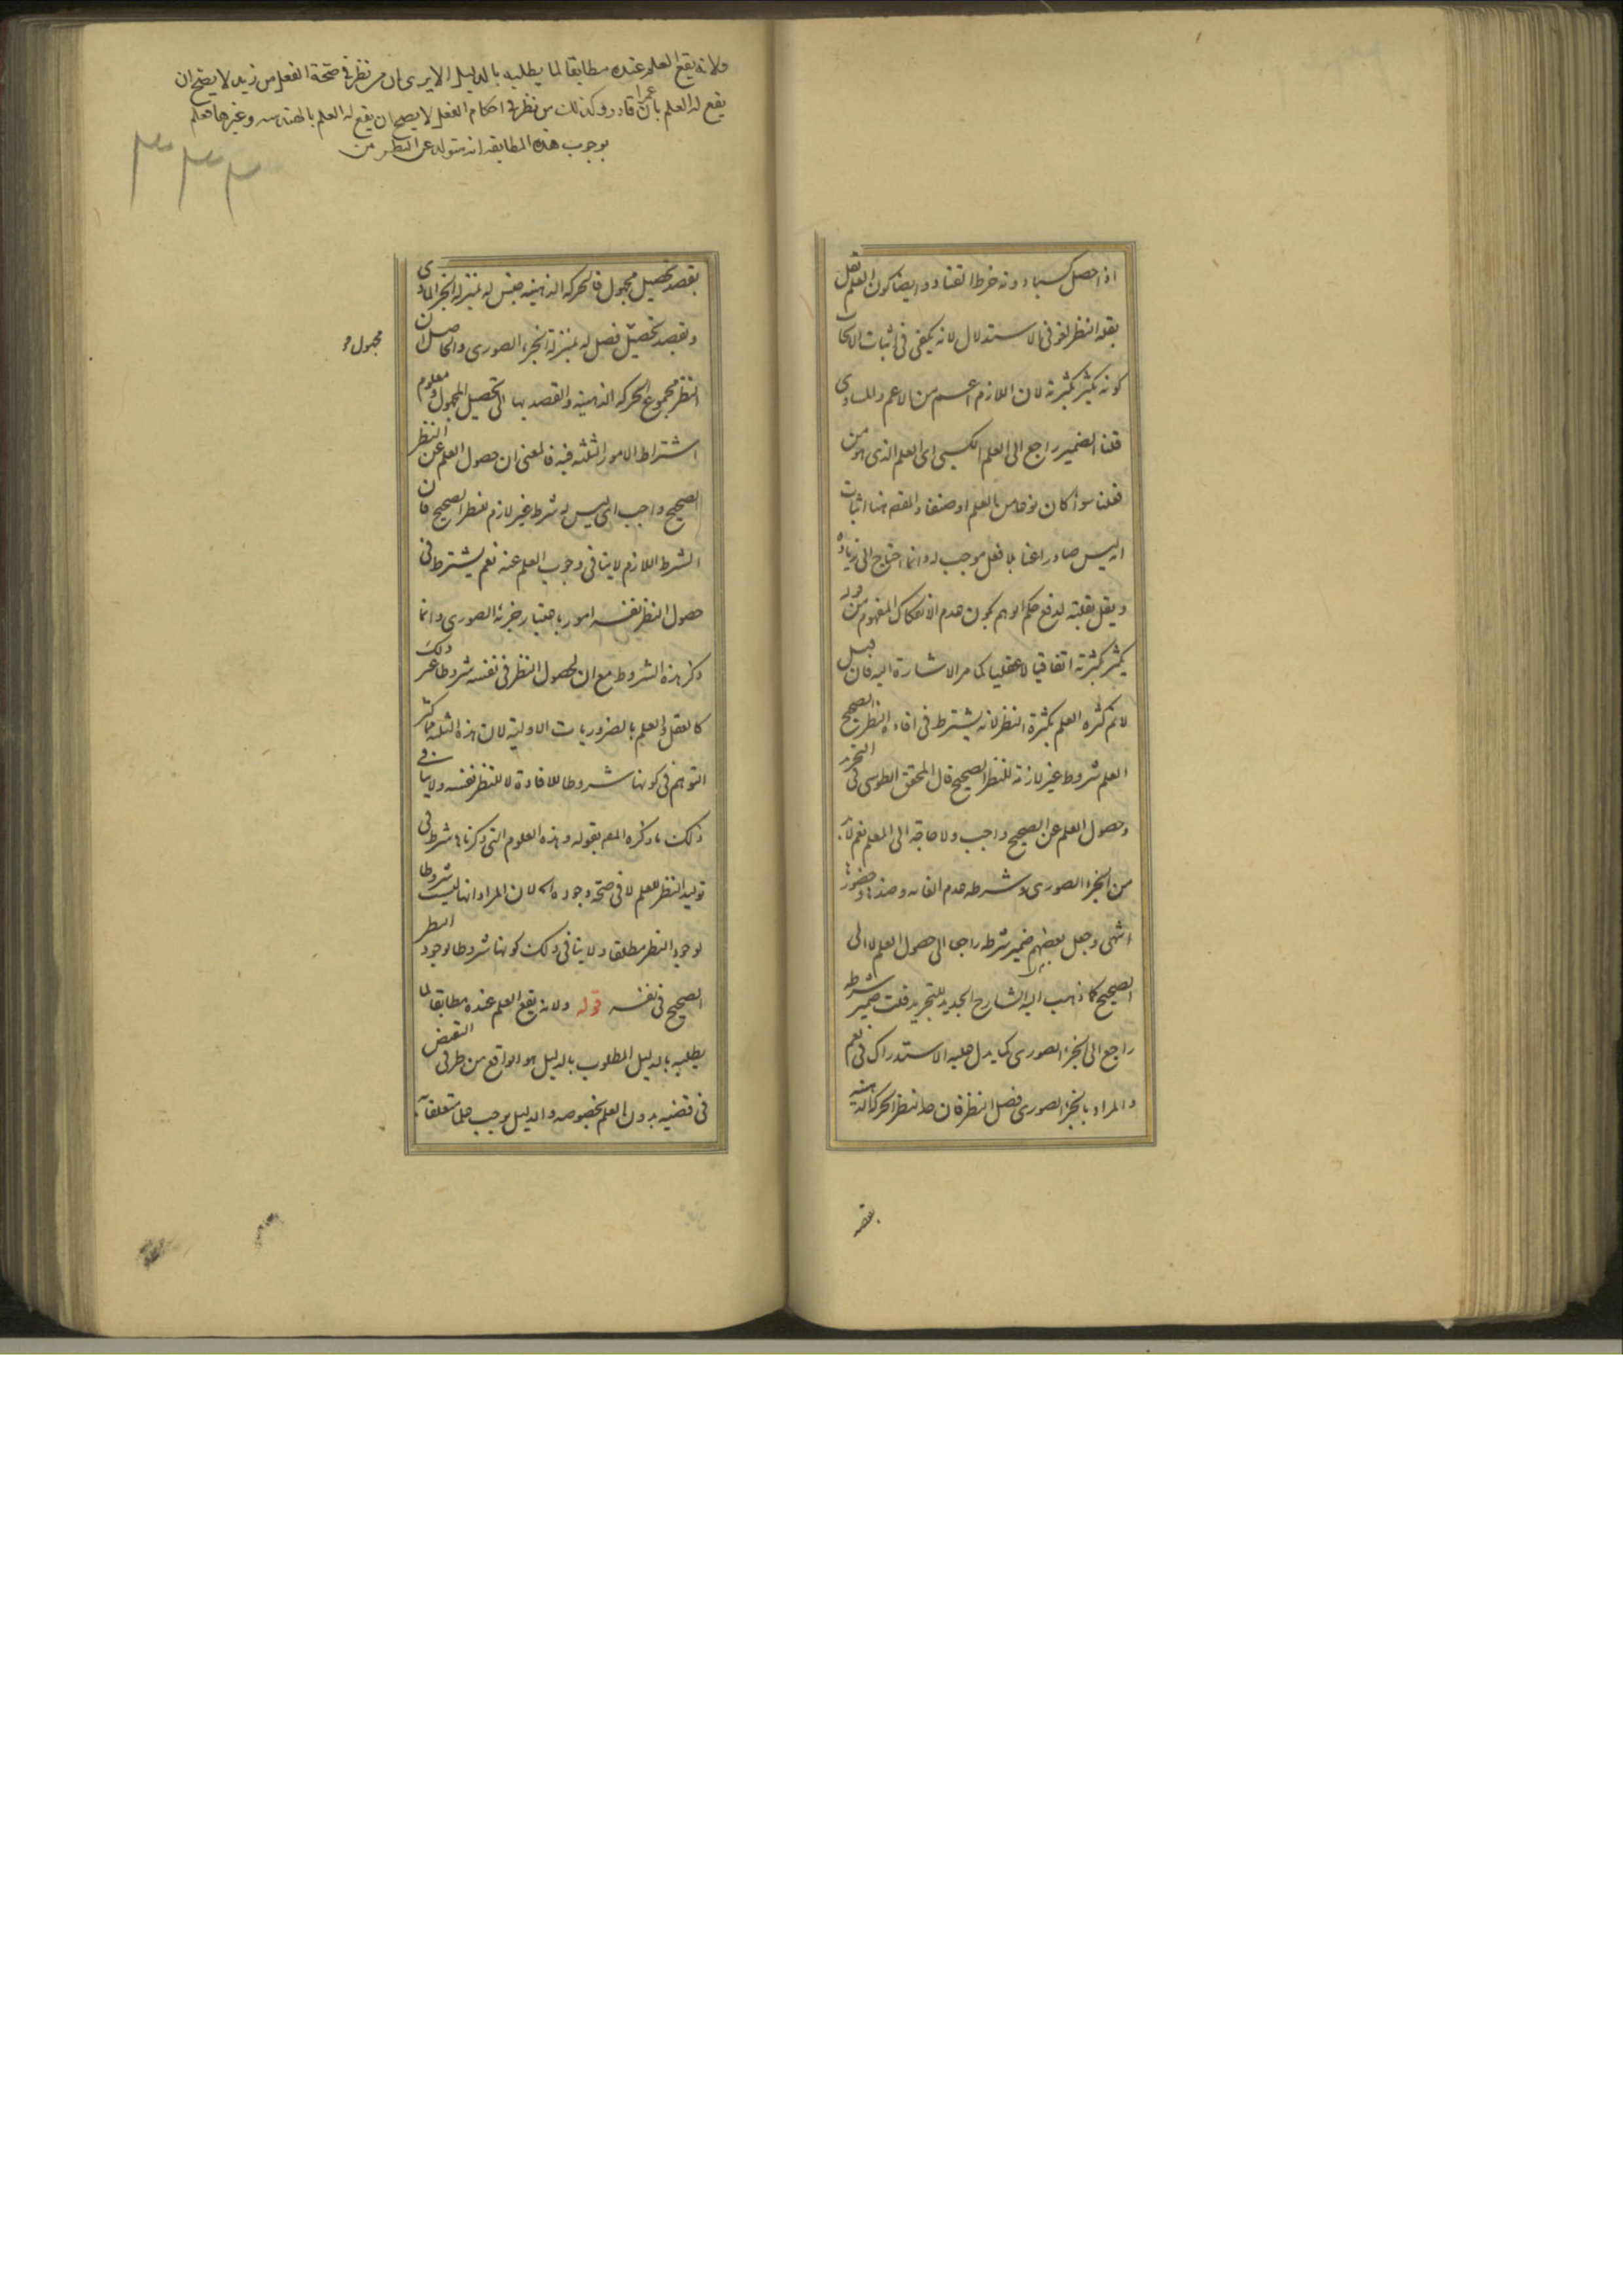 اذا حصل كسبا دونه خرط القتاد وايضا كون العلم يقل
بقلة النظر لغو في الاستدلال لانه يكفي في اثبات الايجاب
كونه يكثر بكثرته لان اللازم اعم من الاعم والمساوي
قلنا الضمير راجع الى العلم الكسبي اي العلم الذي هو من
فعلنا سواء كان نوعا من العلم او صنفا والقصد هنا اثبات
انه ليس صادرا عنا بلا فعل موجب له وانما احتاج الى زيادة
ويقل بقلته لدفع حكم الوهم بكون عدم الانفكاك المفهوم من قوله
يكثر بكثرته اتفاقيا لا عقليا كما مر الاشارة اليه فان قيل
لانم كثرة العلم بكثرة النظر لانه يشترط في افادة النظر الصحيح
العلم شروط غير لازمة للنظر الصحيح قال المحقق الطوسي في التجريد
وحصول العلم عن الصحيح واجب ولا حاجة الى المعلم نعم لابد
من الجزء الصوري وشرطه عدم الغاية وضدها وحضورها
انتهى وجعل بعضهم ضمير شرطه راجعا الى حصول العلم لا الى
الصحيح كما ذهب اليه الشارح الجديد للتجريد قلت ضمير شرطه
راجع الى الجزء الصوري كما يدل عليه الاستدراك في نعم
والمراد بالجزء الصوري فصل النظر فان حد النظر الحركة الذهنية
بقصد
ولانه يقع العلم عنده مطابقا لما يطلبه بالدليل الا يرى ان من نظر في صحة الفعل من زيد لا يصح ان
يقع له العلم بان عمرا قادر وكذلك من نظر في احكام الفعل لا يصح ان يقع له العلم بالهندسه وغيرها فعلم
بوجوب هذه المطابقه انه متولد عن النظر من
بقصد تحصيل مجهول فالحركة الذهنية جنس له بمنزلة الجزء المادي
وبقصد تحصيل فصل له بمنزلة الجزء الصوري والحاصل ان
مجهول و
النظر مجموع الحركة الذهنية والقصد بها الى تحصيل المجهول ومعلوم
اشتراط الامور الثلثة فيه فالمعنى ان حصول العلم عن النظر
الصحيح واجب اي ليس له شرط غير لازم للنظر الصحيح فان
الشرط اللازم لا ينافي وجوب العلم عنه نعم يشترط في
حصول النظر نفسه امور باعتبار جزئه الصوري وانما
ذكر هذه الشروط مع ان لحصول النظر في نفسه شروطا غير ذلك
كالعقل والعلم بالضروريات الاولية لان هذه الثلثة مما كثر
التوهم في كونها شروطا للافادة لا للنظر نفسه ولا ينافي
ذلك ما ذكره المصـ بقوله وهذه العلوم التي ذكرناها شرط في
توليد النظر للعلم لا في صحة وجوده اه لان المراد انها ليست شروطا
لوجود النظر مطلقا ولا ينافي ذلك كونها شروطا لوجود النظر
الصحيح في نفسه قوله ولانه يقع العلم عنده مطابقا لما
يطلبه بالدليل المطلوب بالدليل هو الواقع من طرفي النقيض
في قضية بدون العلم بخصوصه والدليل يوجب علما متعلقا به